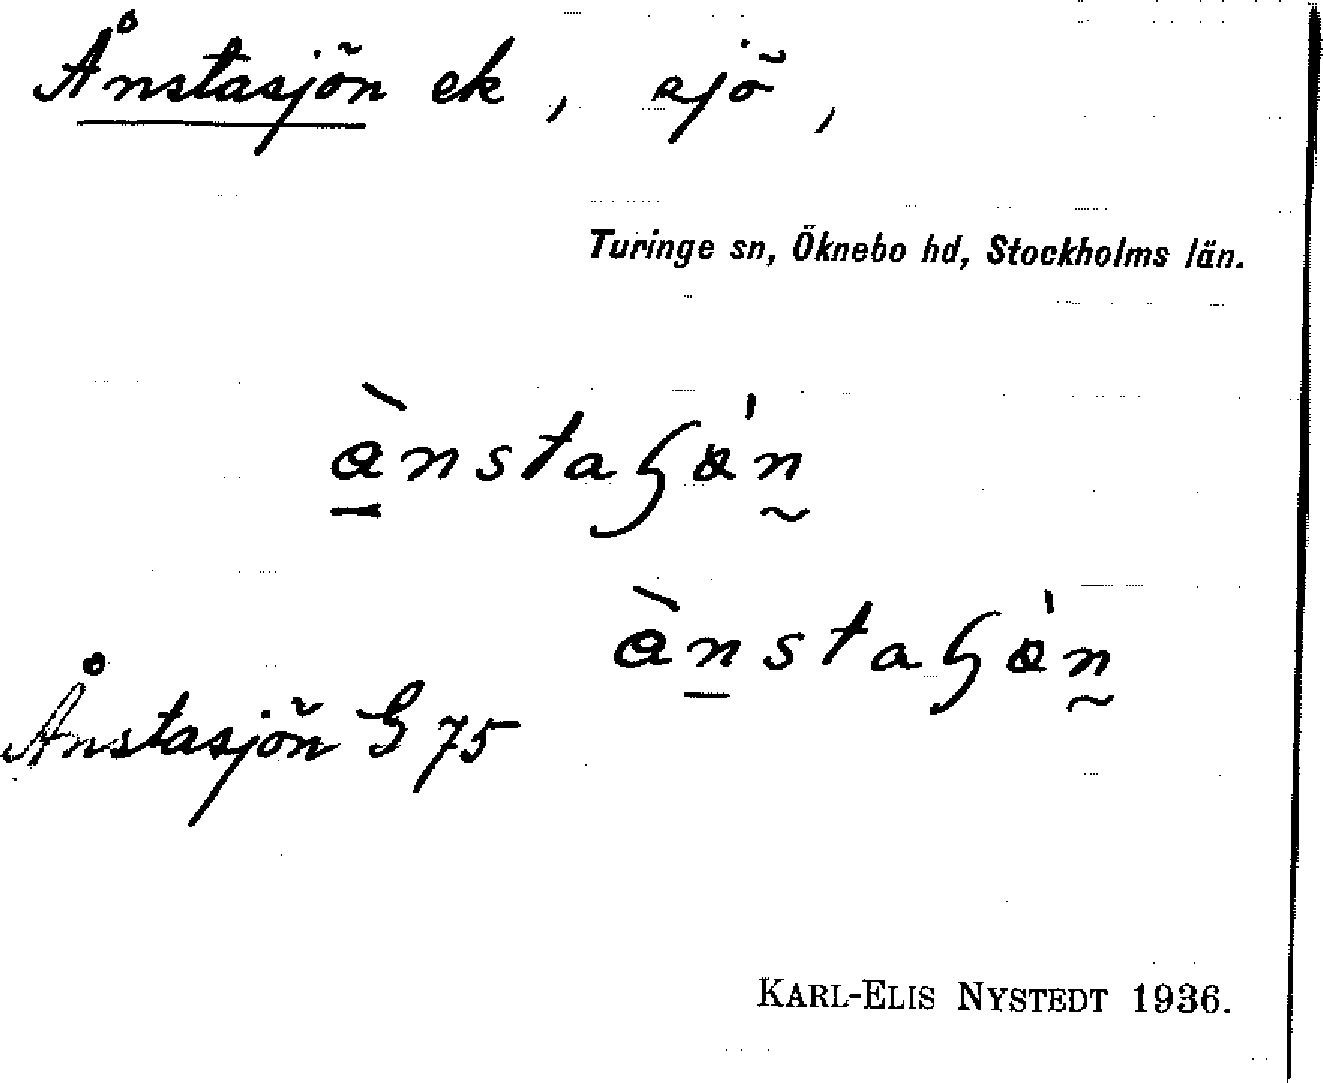 Ånstasjön ek, sjö,
Turinge sn, Öknebo hd, Stockholms län.
Ånstasjön G 75
KARL-ELIS NYSTEDT 1936.